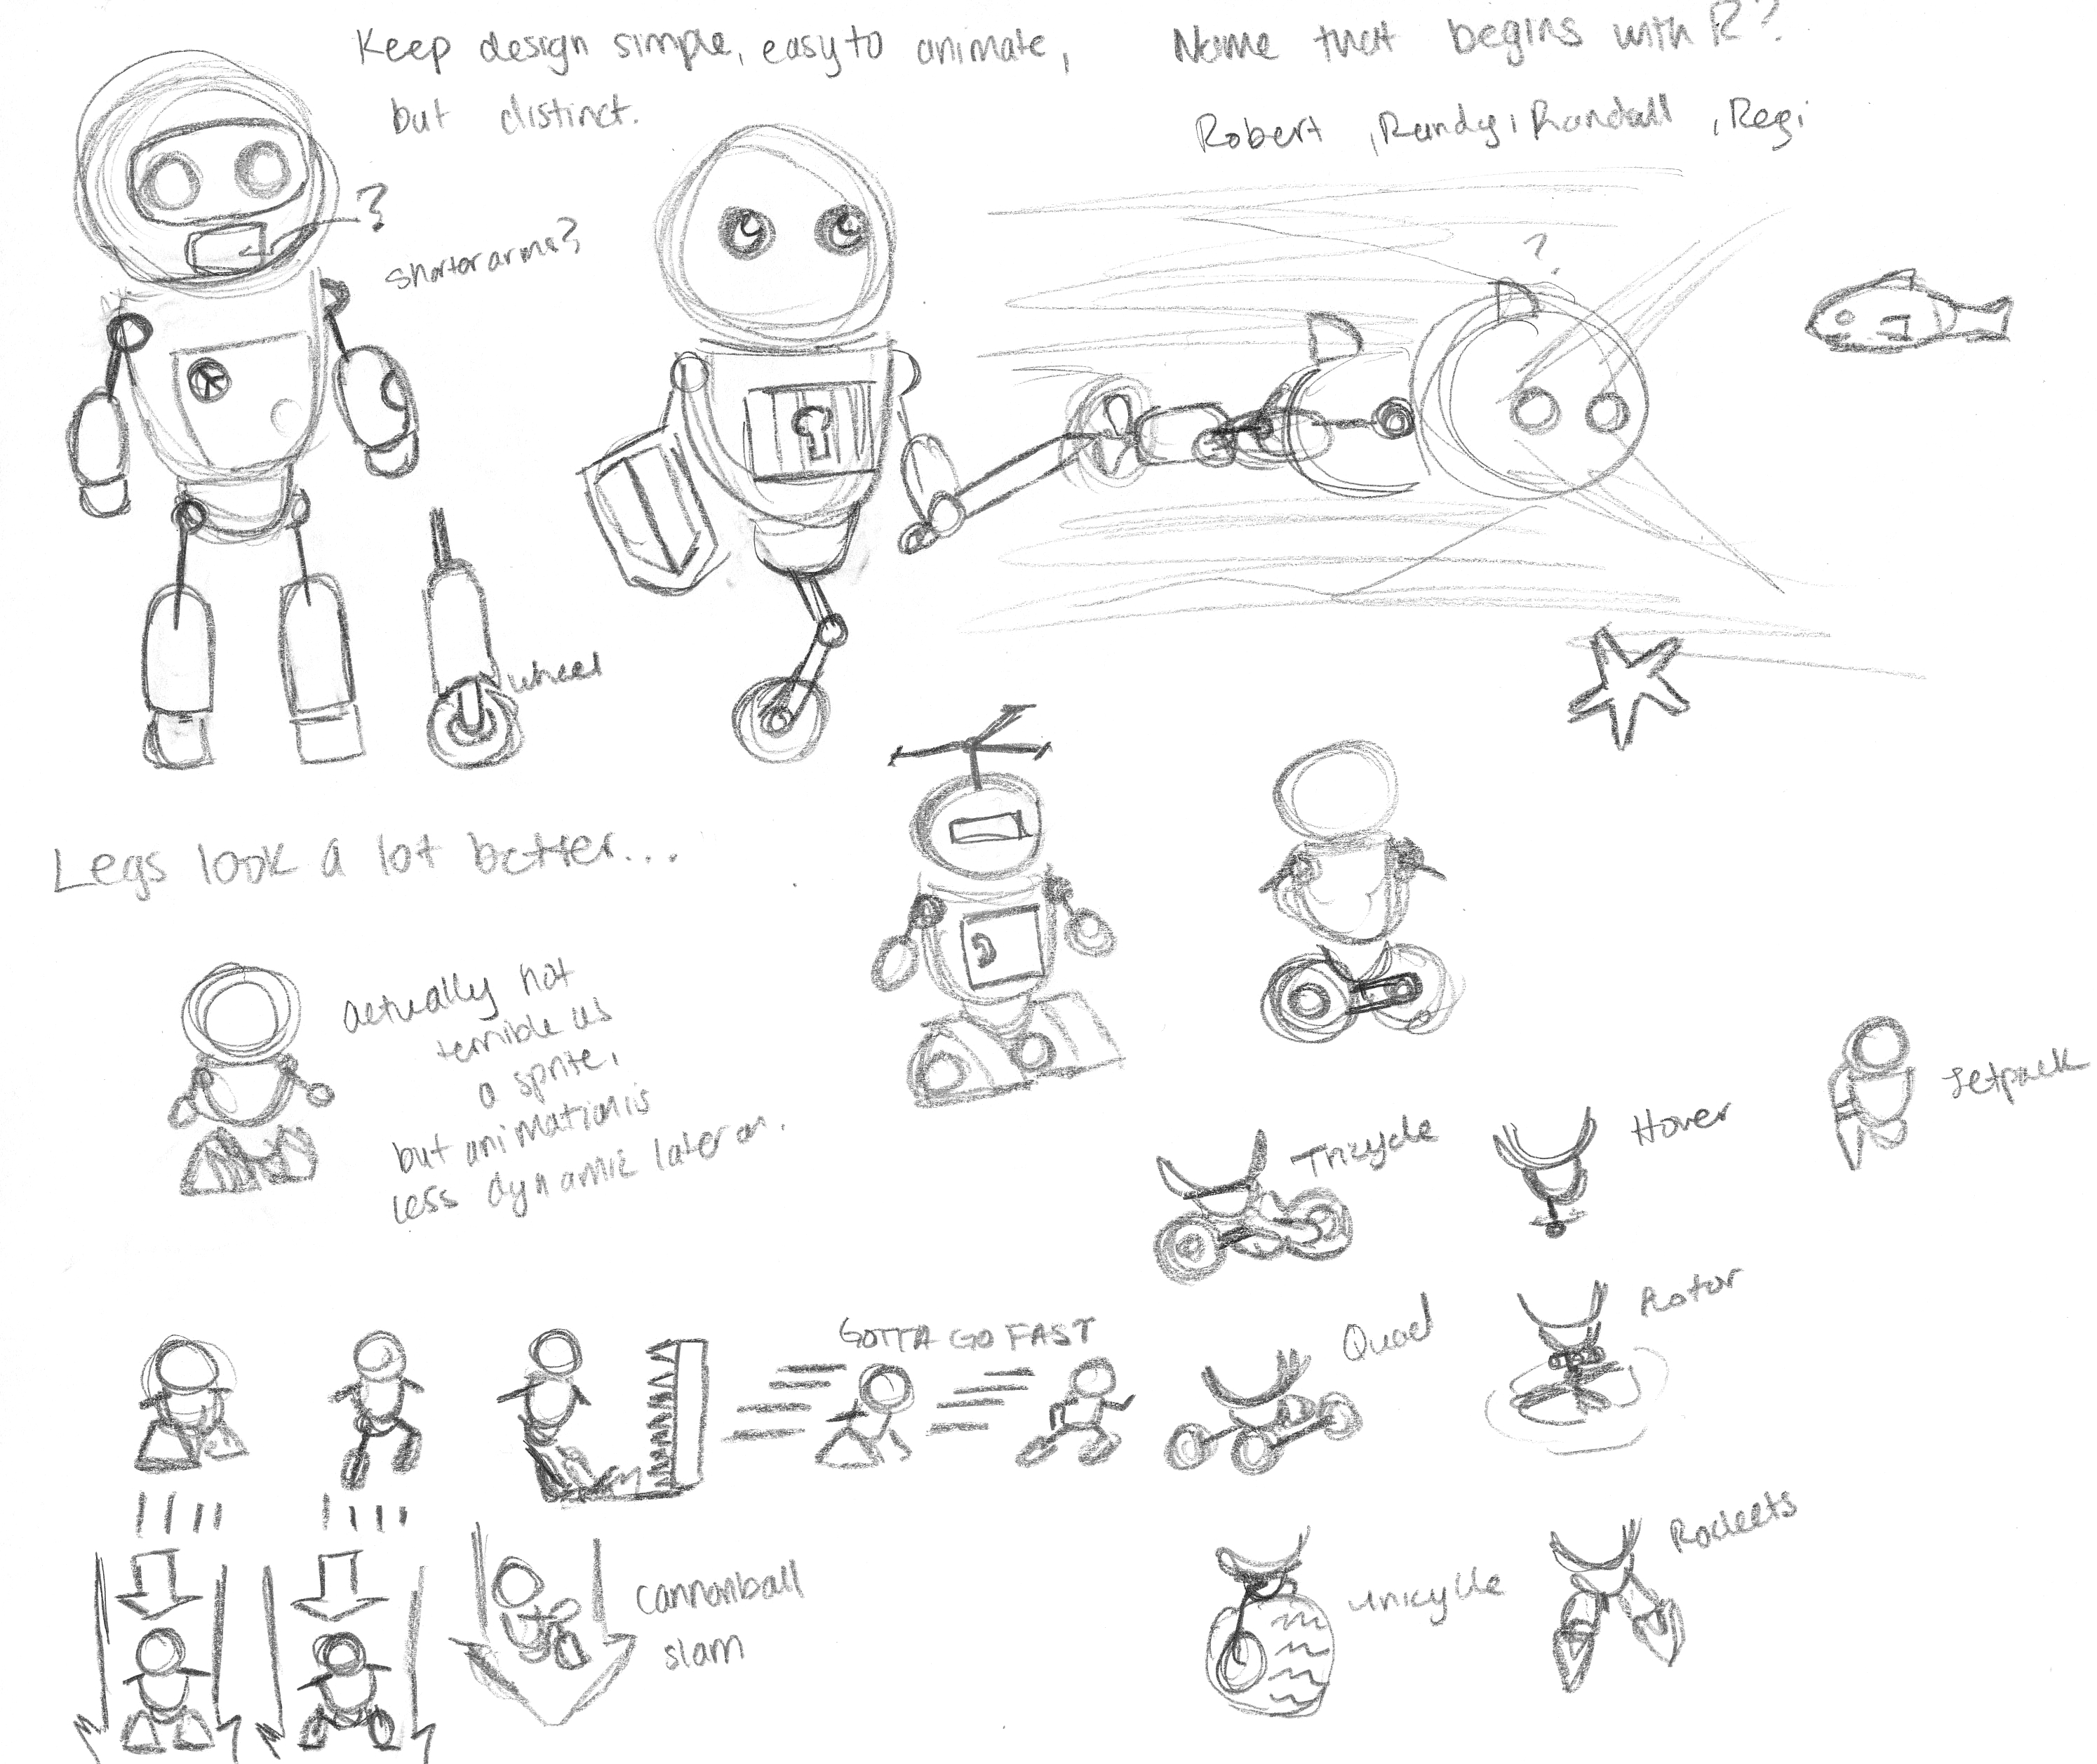 Keep design simple, easy to animate,
but distinct.
Name that begins with R?
Robert, Randy, Randall, Regi
?
shorter arms?
?
wheel
Legs look a lot better...
actually not
terrible as
a sprite,
but animation is
less dynamic later on.
Jetpack
Tricycle
Hover
GOTTA GO FAST
Quad
Rotor
cannonball
slam
unicylle
Rockets